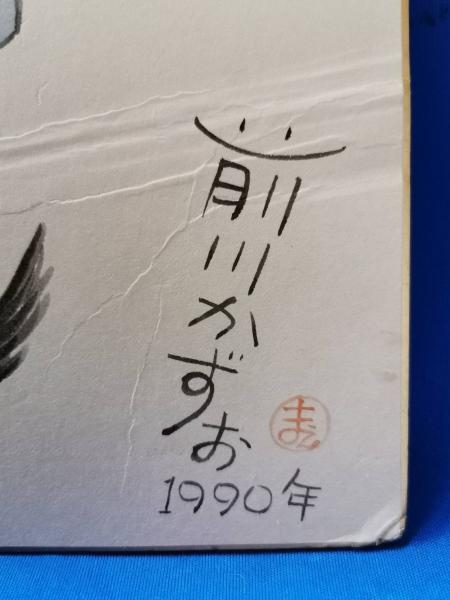 前川かずお
1990年